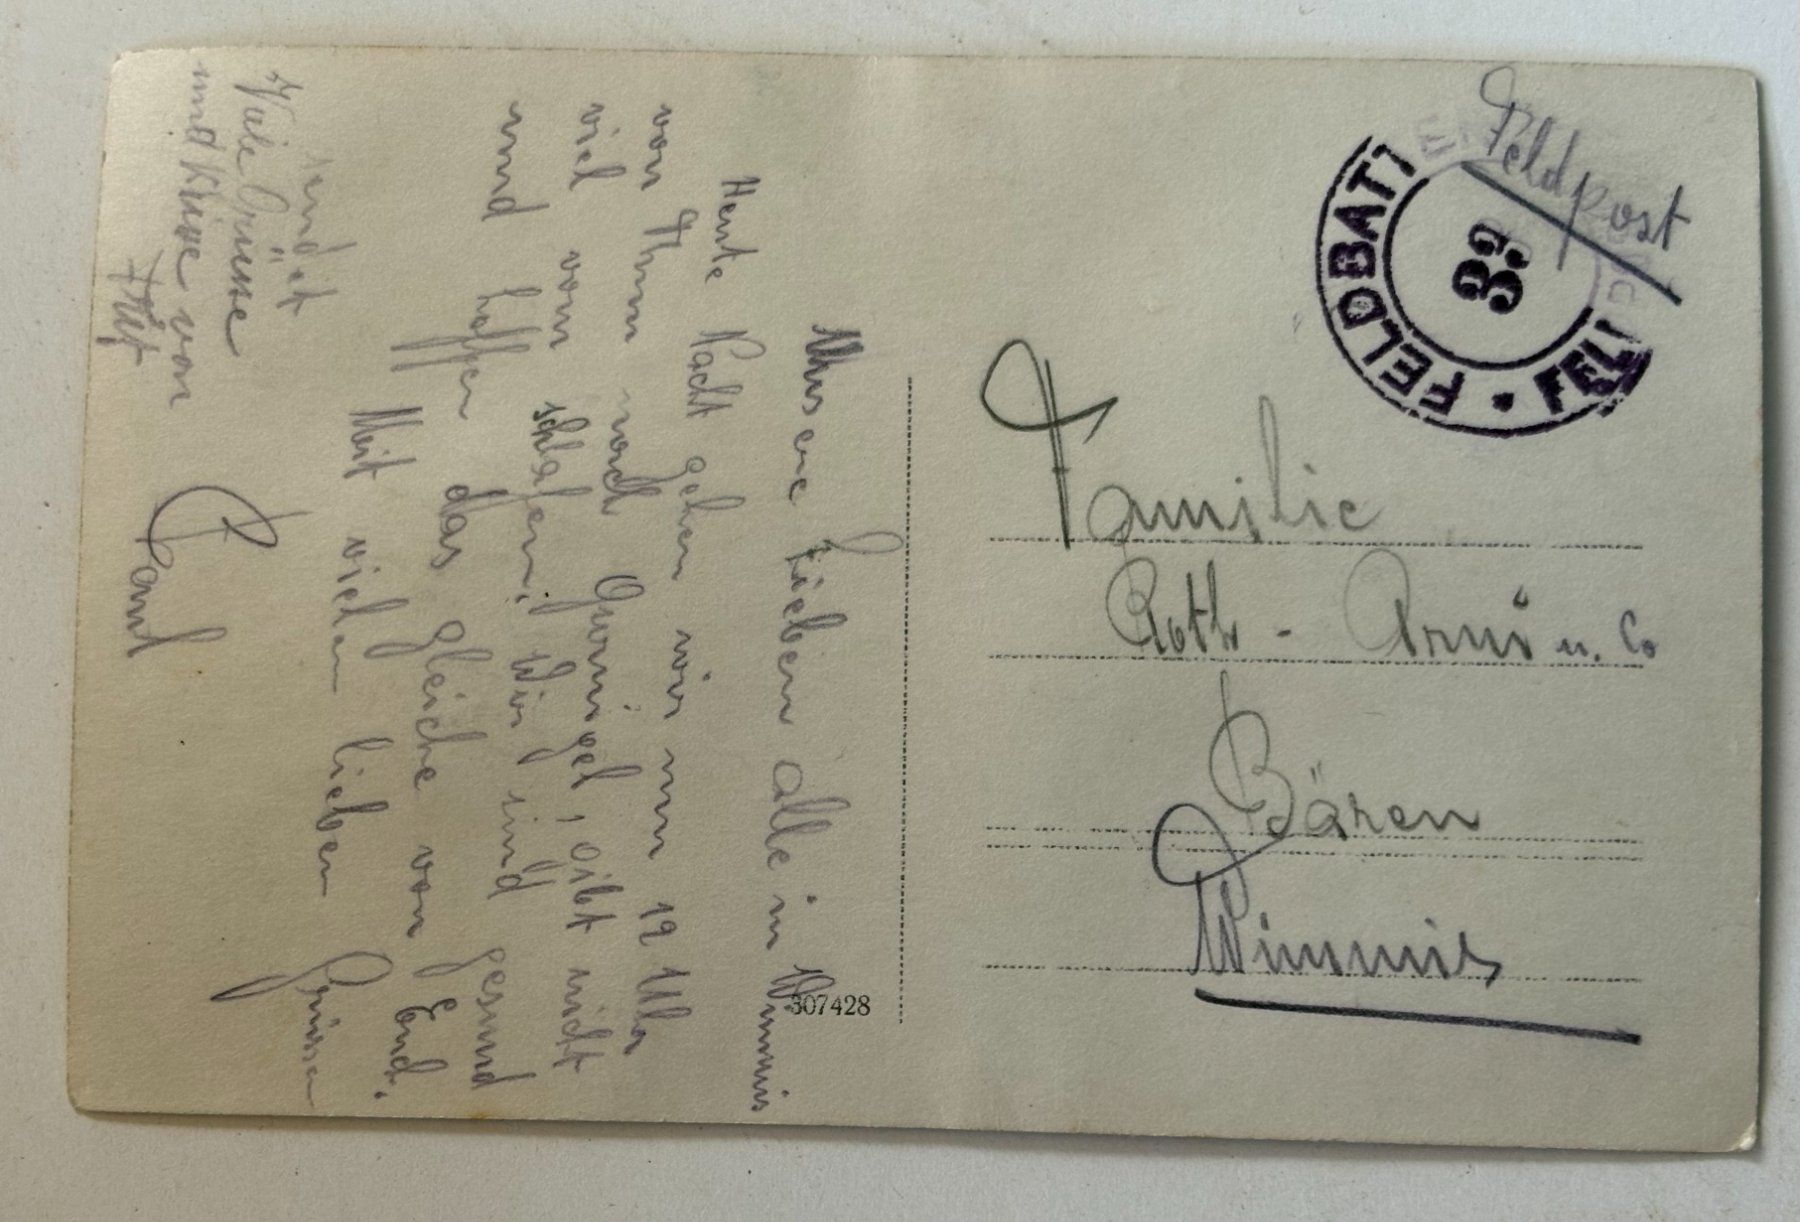 Unsere Lieben alle in Wimmis
Heute Nacht gehen wir um 12 Uhr
von Thun nach Gurnigel, gibt nicht
viel vom schlafen! Wir sind gesund
und hoffen das gleiche von Euch.
Mit vielen lieben Grüssen
sendet
Paul
Viele Grüsse
und Küsse von
307428
Feldpost
FELDBATT
FEL
33
Familie
Roth - Arni u. Co
Bären
Wimmis